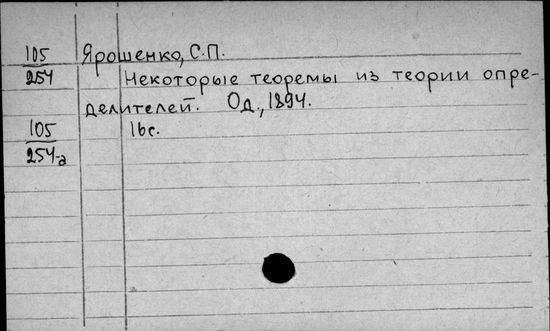 105 Ярошенко, С.П.
254 Некоторые теоремы из теории опре-
делителей. Од., 1894.
105 16с.
254-а